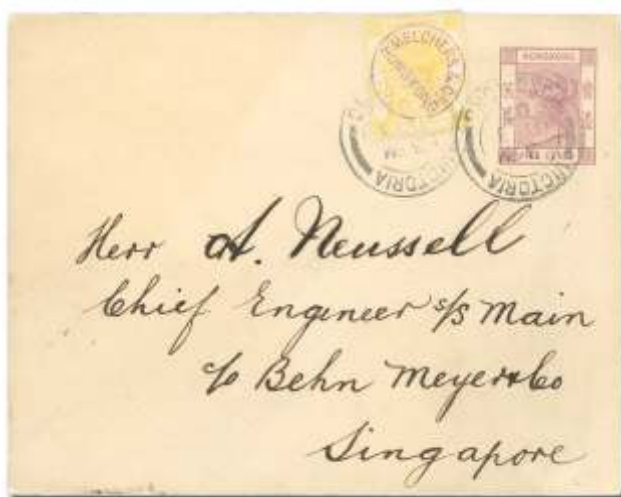 HONGKONG
MELCHERS & CO.
HONGKONG
VICTORIA
VICTORIA
Herr A. Neussell
Chief Engineer s/s Main
c/o Behn Meyer & Co
Singapore